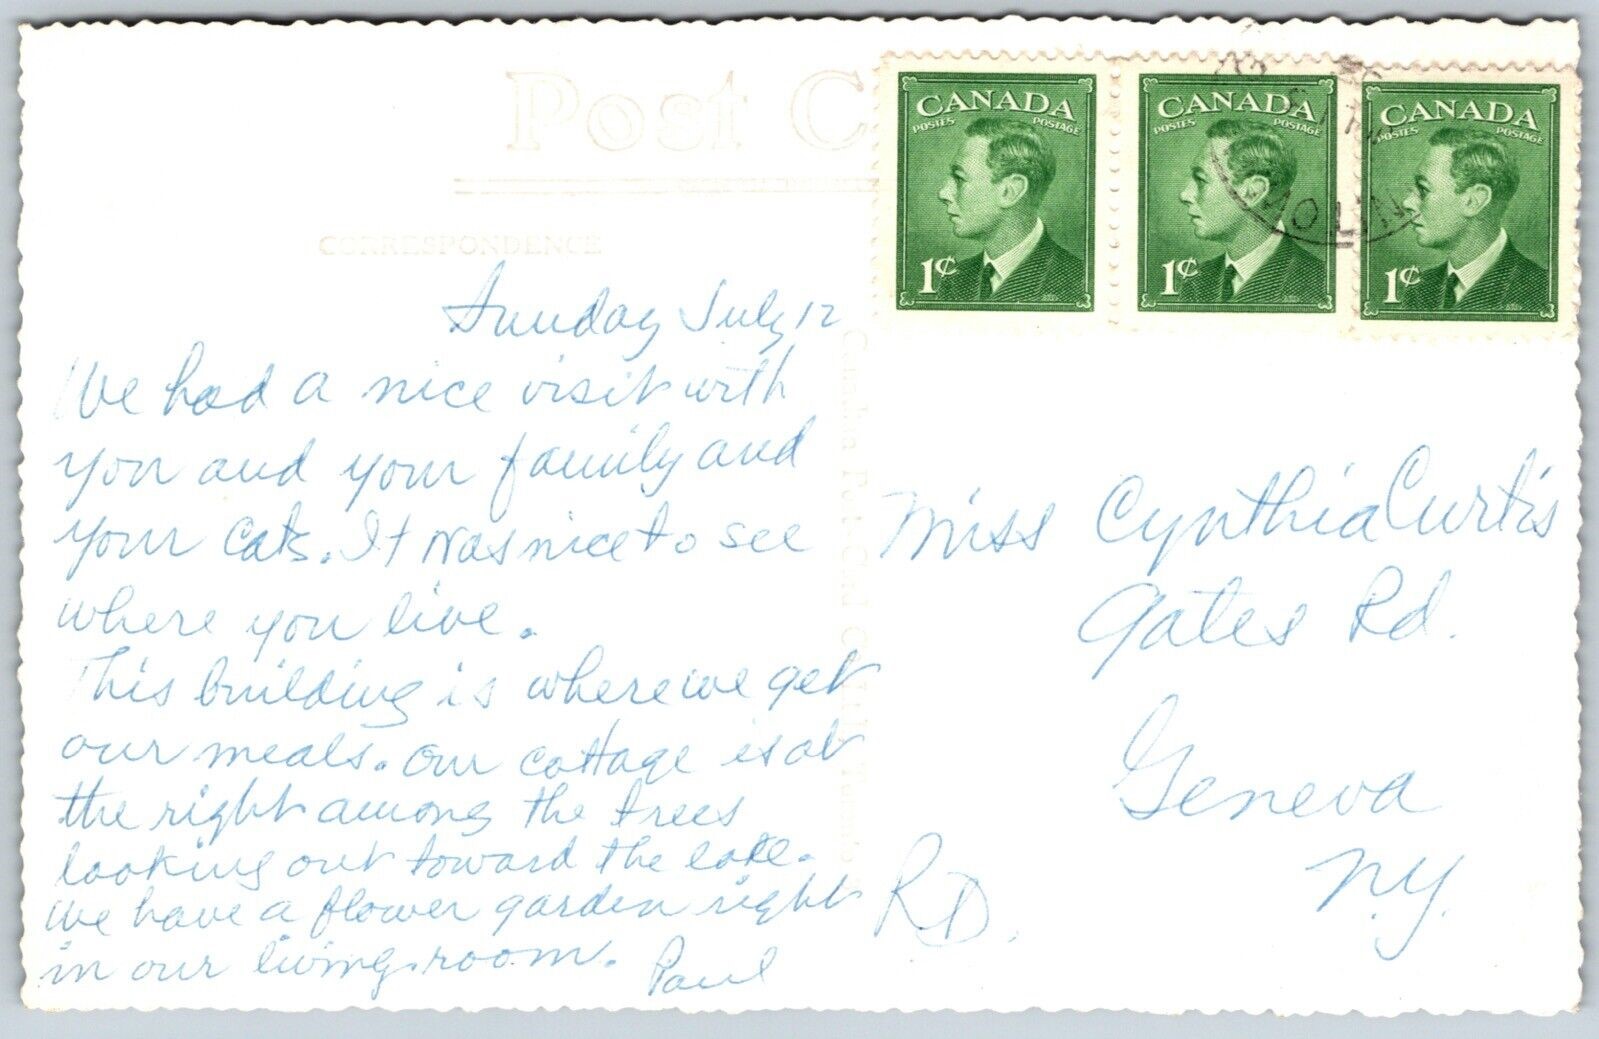 Post C
CORRESPONDENCE
CANADA
POSTES POSTAGE
1¢
CANADA
POSTES POSTAGE
1¢
CANADA
POSTES POSTAGE
1¢
Sunday July 12
We had a nice visit with
you and your family and
your cats. It was nice to see
where you live.
This building is where we get
our meals. Our cottage is at
the right among the trees
looking out toward the lake.
We have a flower garden right
in our living room. Paul
Miss Cynthia Curtis
Gates Rd.
Geneva
N.Y.
R.D.